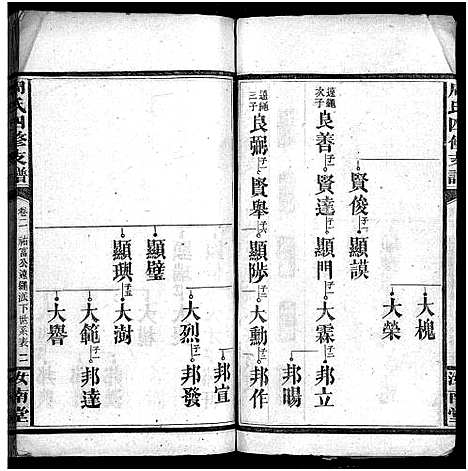 周氏四修支譜
大槐
賢俊 顯謨 大榮
遠繩次子 良善 賢達 顯門 大霖 邦立
邦暘
遠繩三子 良弼 賢舉 顯陟 大勳 邦作
邦宣
顯璧 大烈 邦發
顯璵 大澍
大範 邦達
大譽
周氏四修支譜 卷二 祐富公遠繩派下世系表 二 汝南堂